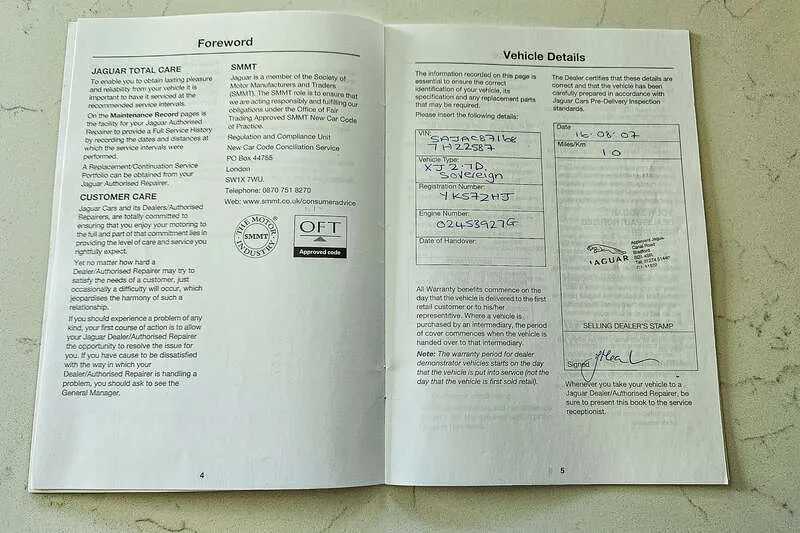 Foreword
JAGUAR TOTAL CARE
To enable you to obtain lasting pleasure
and reliability from your vehicle it is
important to have it serviced at the
recommended service intervals.
On the Maintenance Record pages is
the facility for your Jaguar Authorised
Repairer to provide a Full Service History
by recording the dates and distances at
which the service intervals were
performed.
A Replacement/Continuation Service
Portfolio can be obtained from your
Jaguar Authorised Repairer.
CUSTOMER CARE
Jaguar Cars and its Dealers/Authorised
Repairers, are totally committed to
ensuring that you enjoy your motoring to
the full and part of that commitment lies in
providing the level of care and service you
rightfully expect.
Yet no matter how hard a
Dealer/Authorised Repairer may try to
satisfy the needs of a customer, just
occasionally a difficulty will occur, which
jeopardises the harmony of such a
relationship.
If you should experience a problem of any
kind, your first course of action is to allow
your Jaguar Dealer/Authorised Repairer
the opportunity to resolve the issue for
you. If you have cause to be dissatisfied
with the way in which your
Dealer/Authorised Repairer is handling a
problem, you should ask to see the
General Manager.
SMMT
Jaguar is a member of the Society of
Motor Manufacturers and Traders
(SMMT). The SMMT role is to ensure that
we are acting responsibly and fulfilling our
obligations under the Office of Fair
Trading Approved SMMT New Car Code
of Practice.
Regulation and Compliance Unit
New Car Code Conciliation Service
PO Box 44755
London
SW1X 7WU.
Telephone: 0870 751 8270
Web: www.smmt.co.uk/consumeradvice
THE MOTOR INDUSTRY
SMMT
®
OFT
Approved code
4
Vehicle Details
The information recorded on this page is
essential to ensure the correct
identification of your vehicle, its
specification and any replacement parts
that may be required.
Please insert the following details:
VIN:
SAJAC8716e
7H22587
Vehicle Type:
XJ 2.7D
Sovereign
Registration Number:
YK57ZHJ
Engine Number:
02453927G
Date of Handover:
All Warranty benefits commence on the
day that the vehicle is delivered to the first
retail customer or to his/her
representative. Where a vehicle is
purchased by an intermediary, the period
of cover commences when the vehicle is
handed over to that intermediary.
Note: The warranty period for dealer
demonstrator vehicles starts on the day
that the vehicle is put into service (not the
day that the vehicle is first sold retail).
The Dealer certifies that these details are
correct and that the vehicle has been
carefully prepared in accordance with
Jaguar Cars Pre-Delivery Inspection
standards.
Date
16.08.07
Miles/Km
10
JAGUAR
Appleyard Jaguar
Canal Road
Bradford
SELLING DEALER'S STAMP
Signed
Whenever you take your vehicle to a
Jaguar Dealer/Authorised Repairer, be
sure to present this book to the service
receptionist.
5